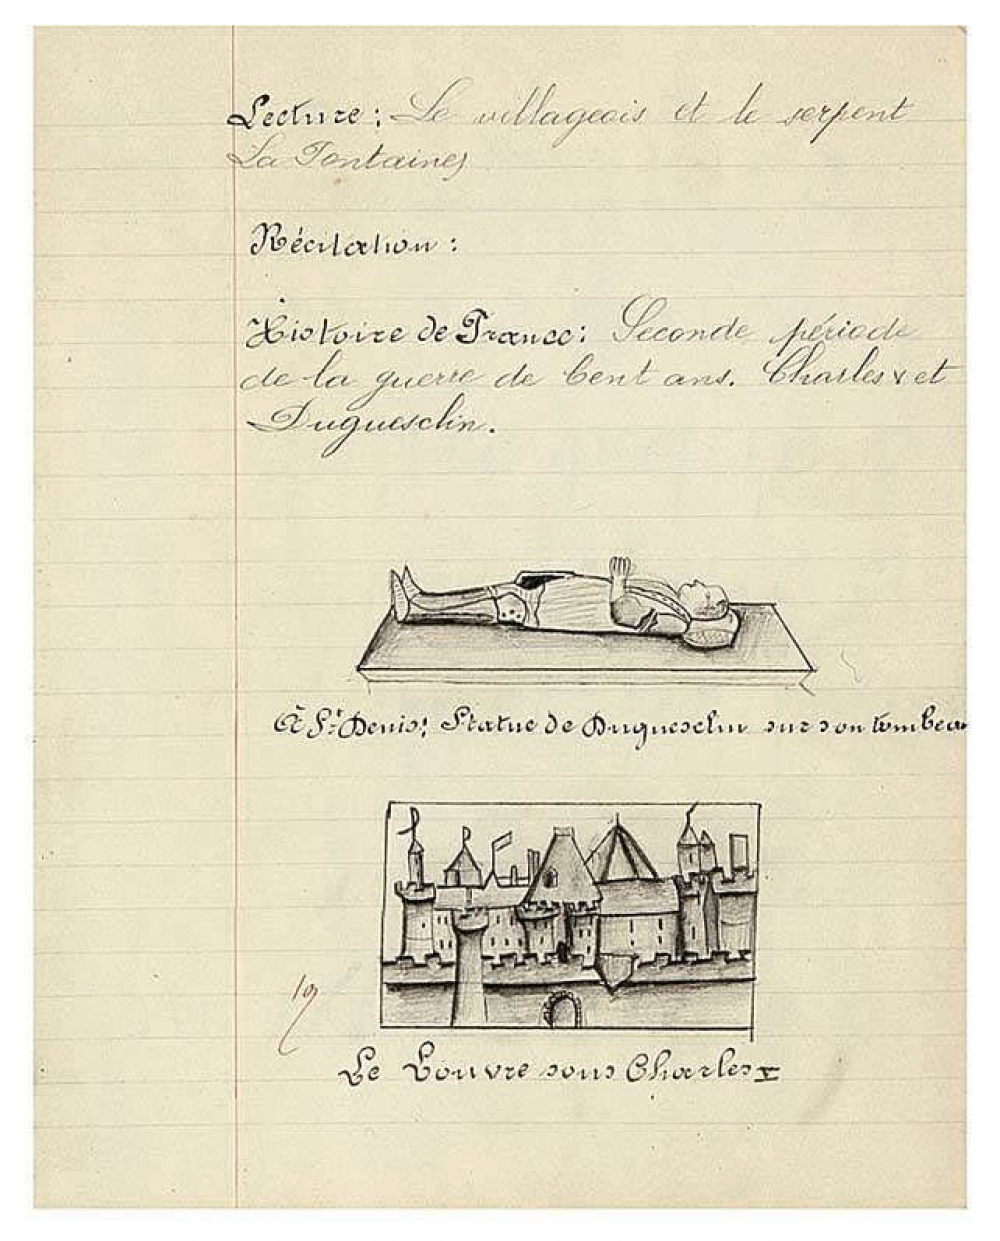 Lecture : Le villageois et le serpent
La Fontaines
Récitation :
Histoire de France : Seconde période
de la guerre de Cent ans. Charles V et
Duguesclin.
À St Denis: Statue de Duguesclin sur son tombeau
19
Le Louvre sous Charles V